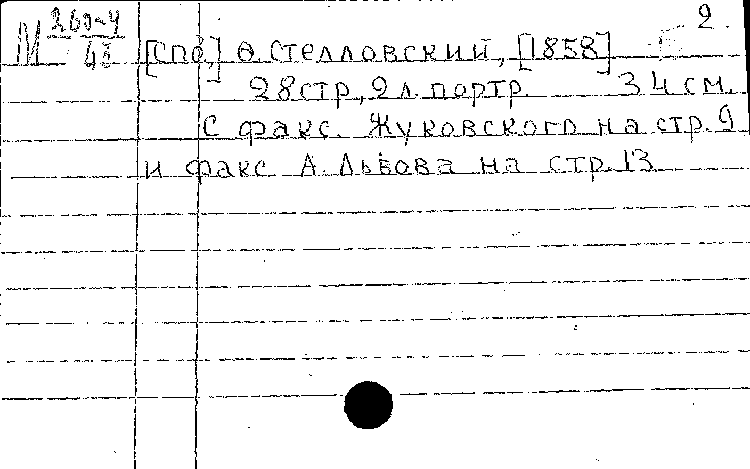 2.
М 260-4
[Спб.,] Ѳ. Стелловский, [1858]
28 стр., 2 л. портр. 34 см.
С факс. Жуковского на стр. 9
и факс А. Львова на стр. 13